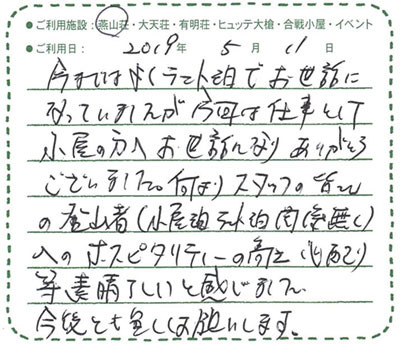 ●ご利用施設：燕山荘・大天荘・有明荘・ヒュッテ大槍・合戦小屋・イベント
●ご利用日： 2019年 5月 11日
今まではよくテント泊でお世話に
なっていましたが今回は仕事として
小屋の方へお世話になりありがとう
ございました。何よりスタッフの皆さん
の登山者(小屋泊テント泊関係無く)
へのホスピタリティーの高さ 心配り
等素晴らしいと感じました
今後とも宜しくお願いします。